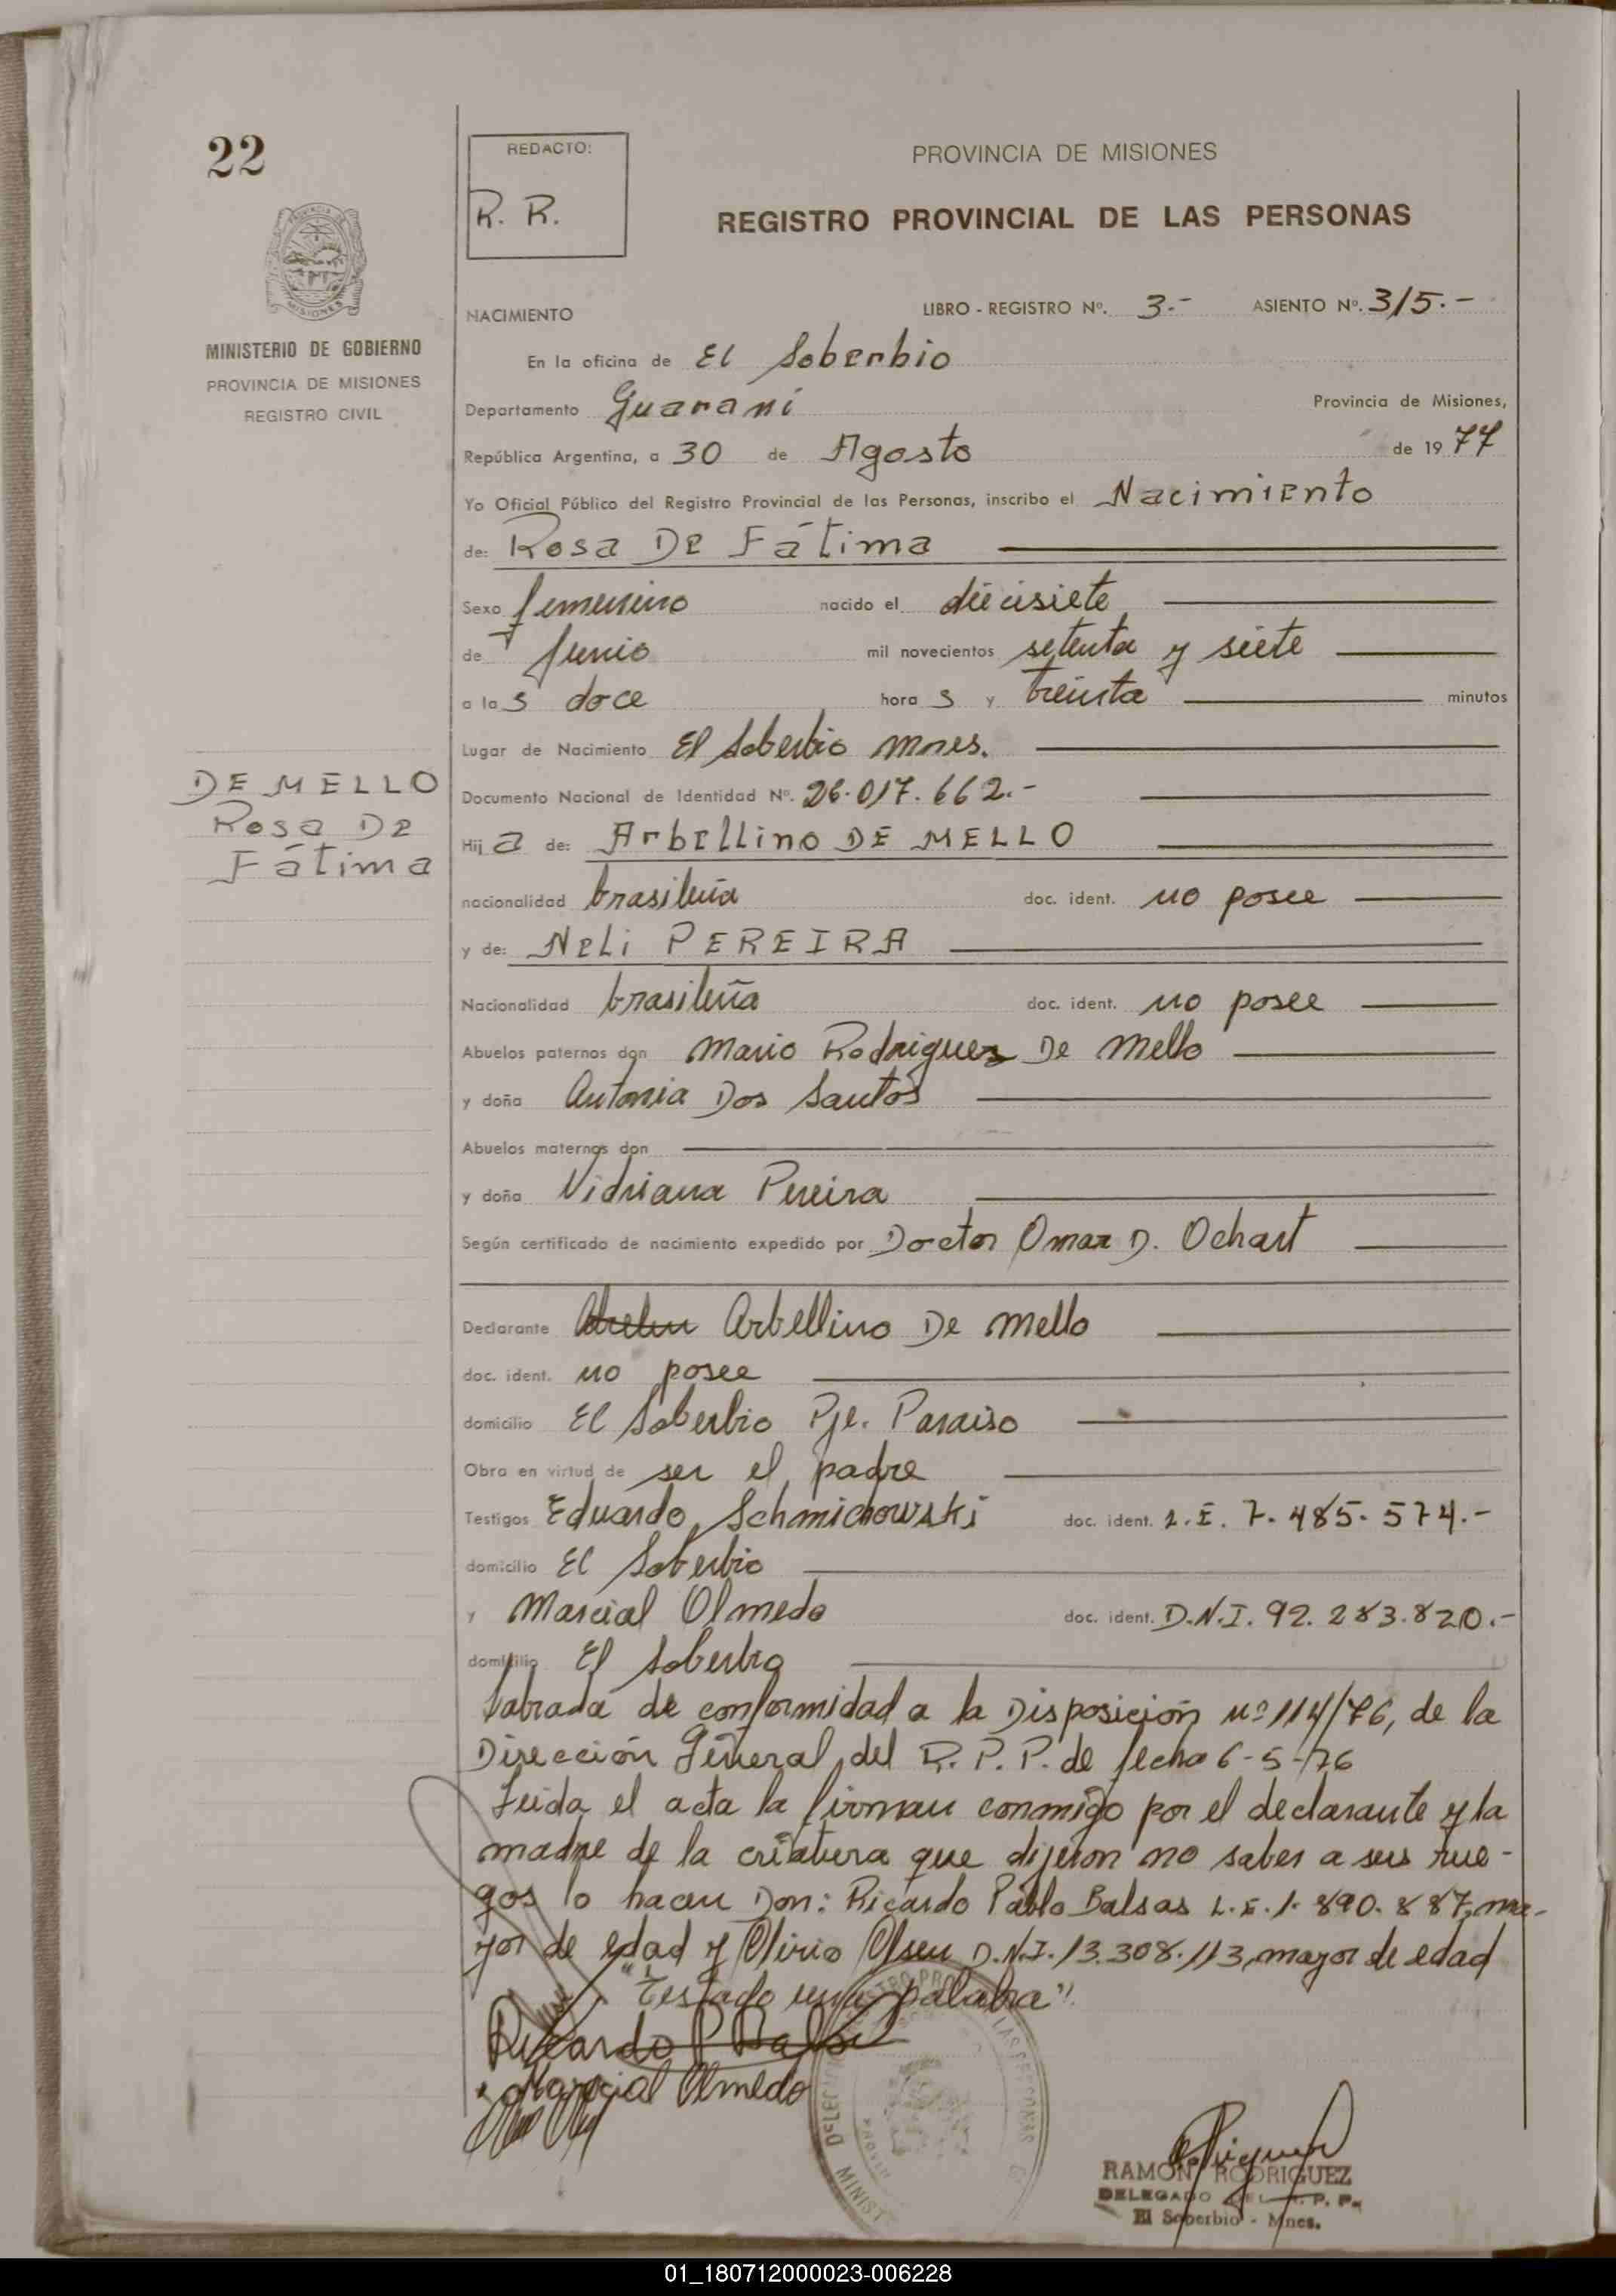 22
REDACTO:
R. R.
PROVINCIA DE MISIONES
REGISTRO PROVINCIAL DE LAS PERSONAS
MISIONES
MINISTERIO DE GOBIERNO
PROVINCIA DE MISIONES
REGISTRO CIVIL
NACIMIENTO LIBRO - REGISTRO Nº. 3.- ASIENTO Nº. 315.-
En la oficina de El Soberbio
Departamento Guaraní Provincia de Misiones,
República Argentina, a 30 de Agosto de 1977
Yo Oficial Público del Registro Provincial de las Personas, inscribo el Nacimiento
de: Rosa De Fátima
Sexo femenino nacido el diecisiete
de Junio mil novecientos setenta y siete
a las doce horas y treinta minutos
Lugar de Nacimiento El Soberbio Mnes.
DE MELLO
Rosa De
Fátima
Documento Nacional de Identidad Nº. 26.017.662.-
Hija de: Arbellino DE MELLO
nacionalidad brasileña doc. ident. no posee
y de: Neli PEREIRA
Nacionalidad brasileña doc. ident. no posee
Abuelos paternos don Mario Rodriguez De Mello
y doña Antonia Dos Santos
Abuelos maternos don
y doña Vidriana Pereira
Según certificado de nacimiento expedido por Doctor Omar D. Ochart
Declarante Arbellino De Mello
doc. ident. no posee
domicilio El Soberbio Pje. Paraiso
Obra en virtud de ser el padre
Testigos Eduardo Schmichowski doc. ident. L.E. 7.485.574.-
domicilio El Soberbio
y Marcial Olmedo doc. ident. D.N.I. 92.283.820.-
domicilio El Soberbio
Labrada de conformidad a la Disposición nº 114/76, de la
Dirección General del R.P.P. de fecha 6-5-76
Leida el acta la firman conmigo por el declarante y la
madre de la criatura que dijeron no saber a sus rue-
gos lo hacen Don: Ricardo Pablo Balsas L.E. 1.890.887, ma-
yor de edad y Olirio Olsen D.N.I. 13.308.113, mayor de edad
"Testado una palabra".
Ricardo P Balsa
Marcial Olmedo
RAMON RODRIGUEZ
DELEGADO DEL R. P. P.
El Soberbio - Mnes.
01_180712000023-006228